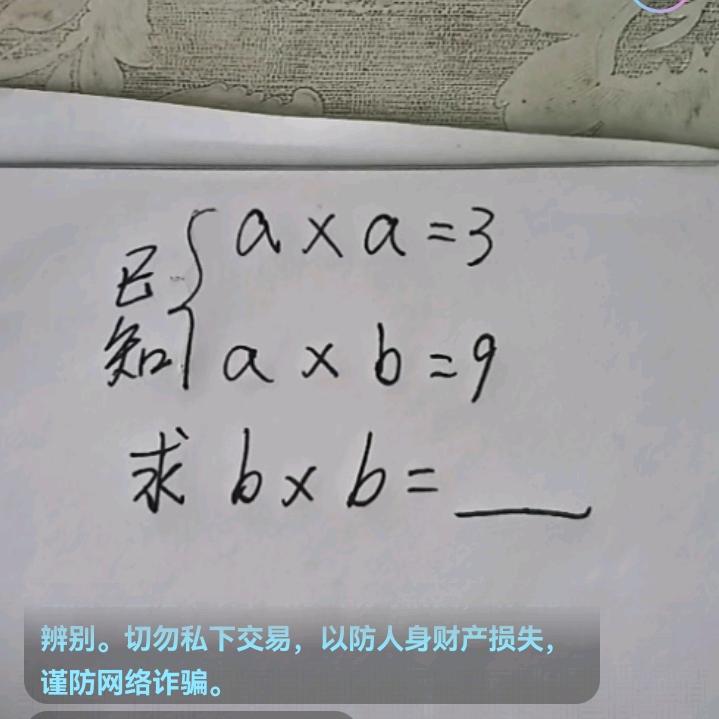 已知
a × a = 3
a × b = 9
求 b × b = ___
辨别。切勿私下交易，以防人身财产损失，
谨防网络诈骗。